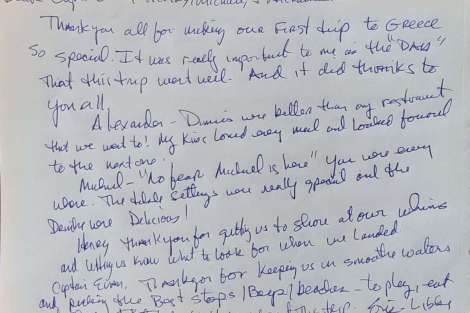 Thank you all for making our First trip to GREECE
So special. It was really important to me as the "DADS"
That this trip went well. And it did thanks to
you all,
Alexander - Dinners were better than any restaurant
that we went to! My Kids loved every meal and looked forward
to the next one.
Michael - "No fear Michael is here" You were every
where. The table settings were really special and the
Drinks were Delicious!
Henry thank you for getting us to shore at our whims
and letting us know what to look for when we landed
Captain Evan, Thank you for keeping us in smooth waters
and picking the Best stops / Bays / beaches - to play, eat
the trip.